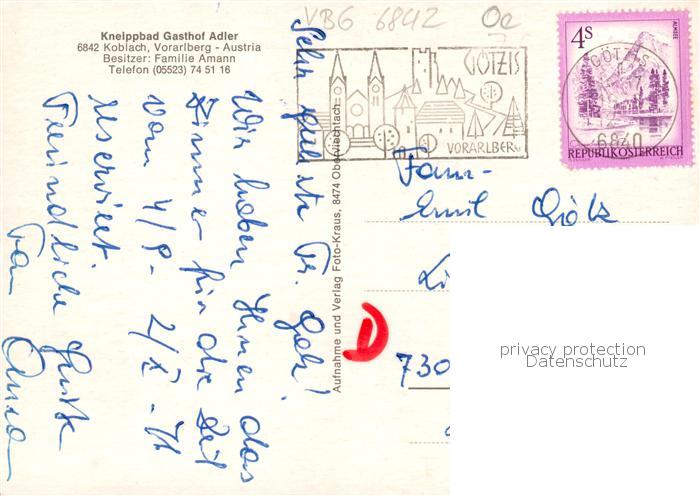 Kneippbad Gasthof Adler
6842 Koblach, Vorarlberg - Austria
Besitzer: Familie Amann
Telefon (05523) 74 51 16
VBG 6842 Oe
GÖTZIS
VORARLBERG
4S
ALMSEE
GÖTZIS
6840
REPUBLIK ÖSTERREICH
Sehr geehrte Fr. Götz!
Wir haben Ihnen das
Zimmer für die Zeit
vom
reserviert.
Freundliche Grüße
Fam
Aufnahme und Verlag Foto-Kraus, 8474 Oberviechtach
Fam.
Emil Götz
D
730
privacy protection
Datenschutz